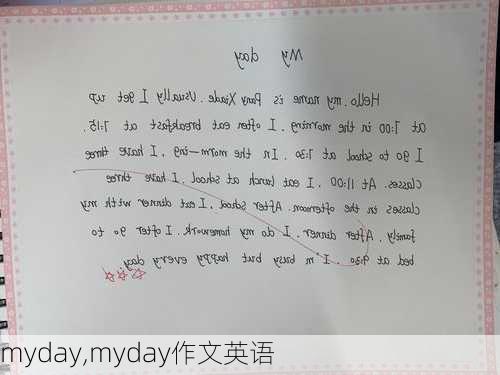 My day
Hello. my name is Pany Xiade. Usually I get up
at 7:00 in the morning. I often eat breakfast at 7:15.
I go to school at 7:30. In the morn—ing, I have three
classes. At 11:00, I eat lunch at school. I have three
classes in the afternoon. After school, I eat dinner with my
family. After dinner, I do my homework. I ofter go to
bed at 9:30. I m busy but happy every day
myday,myday作文英语